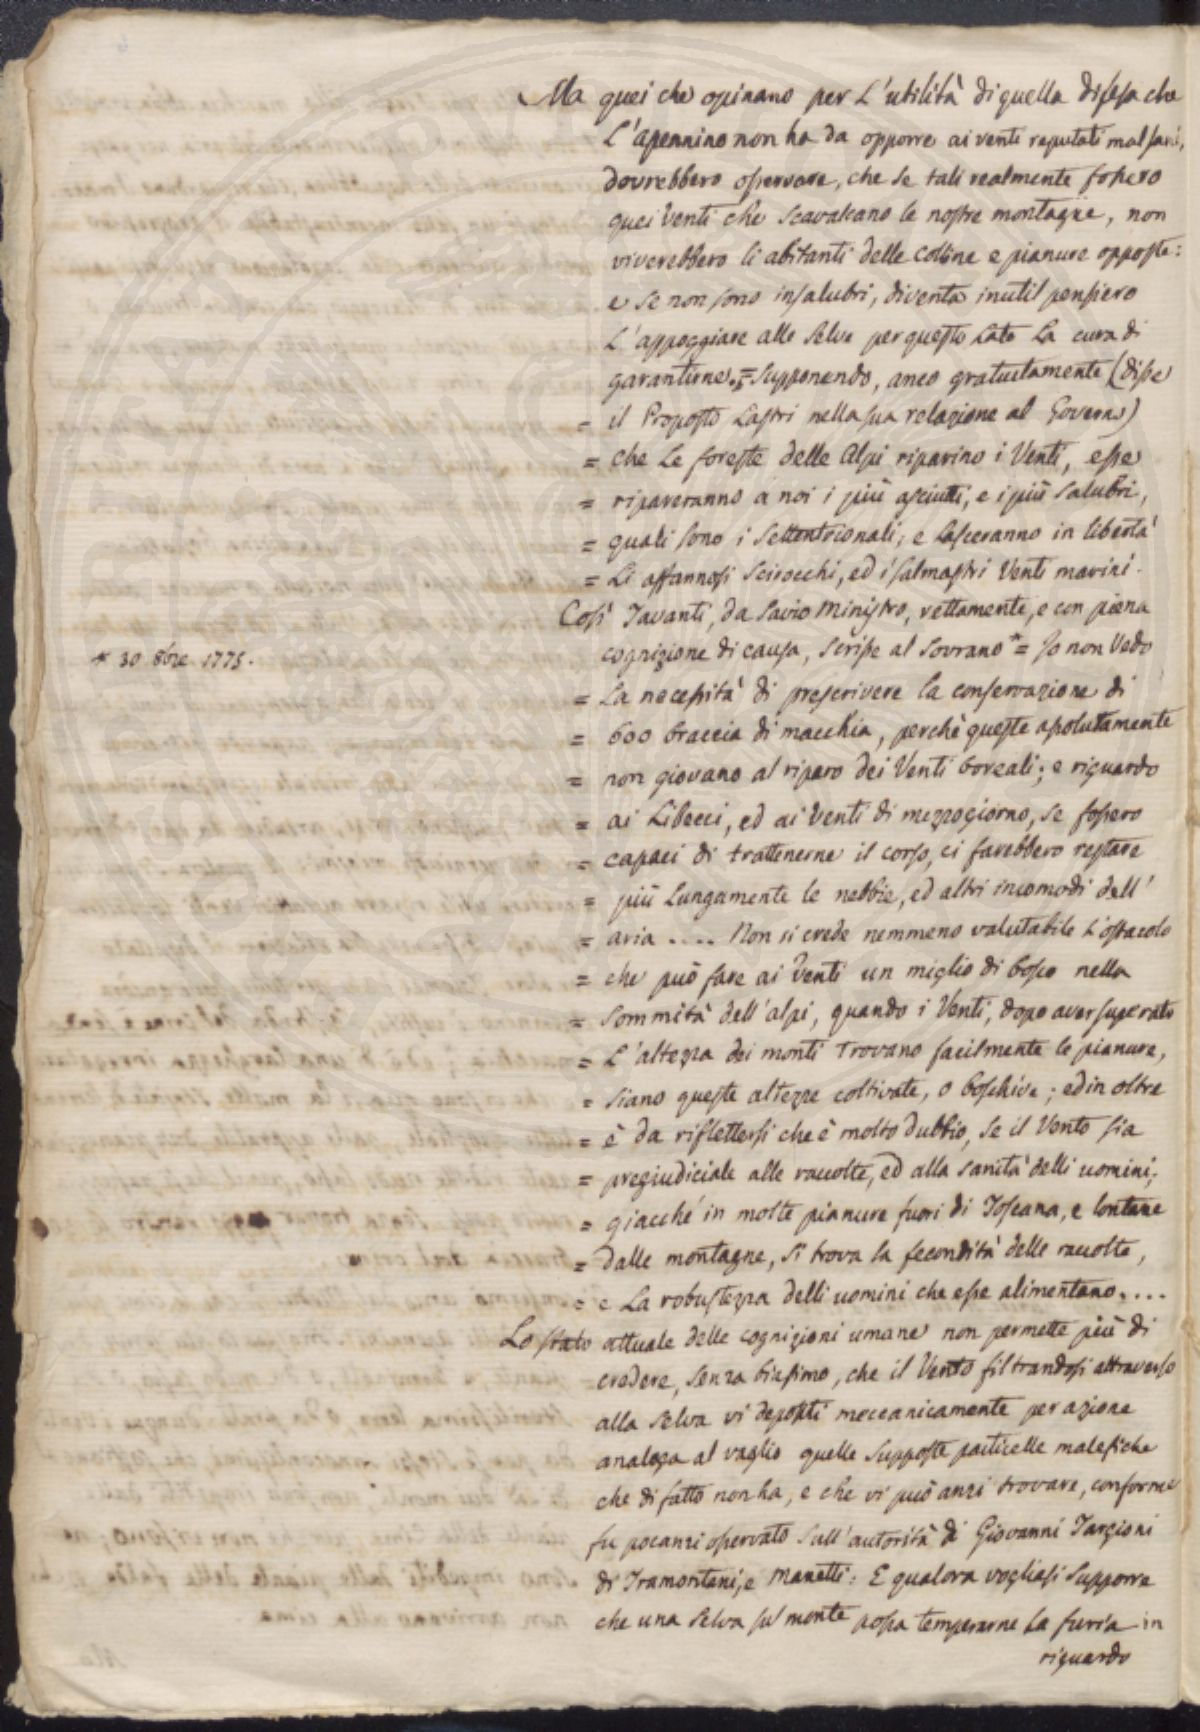 Ma quei che opinano per L'utilità di quella difesa che
L'apennino non ha da opporre ai venti reputati mal sani,
dovrebbero osservare, che se tali realmente fossero
quei Venti che scavalcano le nostre montagne, non
viverebbero li abitanti delle colline e pianure opposte:
e se non sono insalubri, diventa inutil pensiero
L'appoggiare alle selve per questo lato la cura di
garantirne. = Supponendo, anco gratuitamente (disse
= il Proposto Lastri nella sua relazione al Governo)
= che Le foreste delle Alpi riparino i Venti, esse
= ripareranno a noi i più asciutti, e i più salubri,
= quali sono i Settentrionali; e Lasceranno in libertà
= Li affannosi Scirocchi, ed i salmastri Venti marini.
Così Tavanti, da Savio Ministro, rettamente, e con piena
cognizione di causa, scrisse al Sovrano * = Io non Vedo
* 30 8bre 1775.
= La necessità di prescrivere la conservazione di
= 600 braccia di macchia, perchè queste assolutamente
= non giovano al riparo dei Venti boreali; e riguardo
= ai Libecci, ed ai Venti di mezzogiorno, se fossero
= capaci di trattenerne il corso, ci farebbero restare
= più Lungamente le nebbie, ed altri incomodi dell'
= aria .... Non si crede nemmeno valutabile L'ostacolo
= che può fare ai Venti un miglio di bosco nella
= Sommità dell'alpi, quando i Venti, dopo aver superato
= L'altezza dei monti trovano facilmente le pianure,
= siano queste altezze coltivate, o boschive; ed in oltre
= è da riflettersi che è molto dubbio, se il Vento sia
= pregiudiciale alle raccolte, ed alla sanità delli uomini;
= giacché in molte pianure fuori di Toscana, e lontane
= dalle montagne, si trova la fecondità delle raccolte,
= e La robustezza delli uomini che esse alimentano....
Lo stato attuale delle cognizioni umane non permette più di
credere, senza biasimo, che il Vento filtrandosi attraverso
alla selva vi depositi meccanicamente per azione
analoga al vaglio quelle supposte particelle malefiche
che di fatto non ha, e che vi può anzi trovare, conforme
fu pocanzi osservato sull'autorità di Giovanni Targioni
di Tramontani, e Manetti: E qualora vogliasi supporre
che una selva sul monte possa temperarne La furia in
riguardo